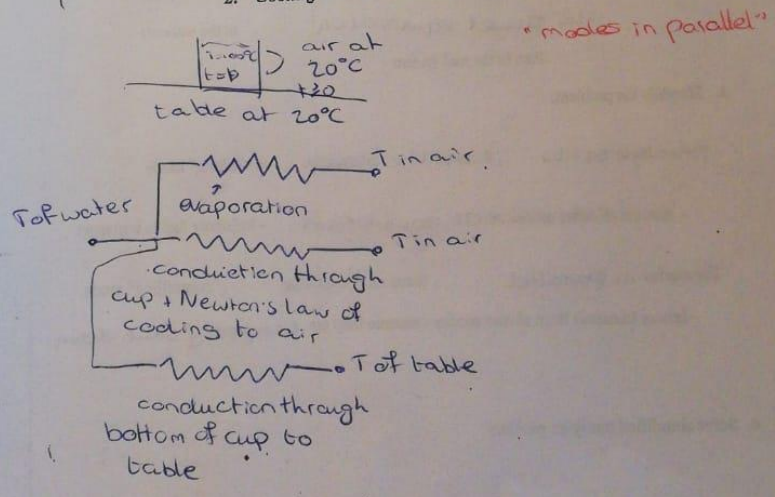 "modes in parallel"
air at
20°C
t≥0
t=0
table at 20°C
T in air.
evaporation
T of water
T in air
conduction through
cup + Newton's law of
cooling to air
T of table
conduction through
bottom of cup to
table